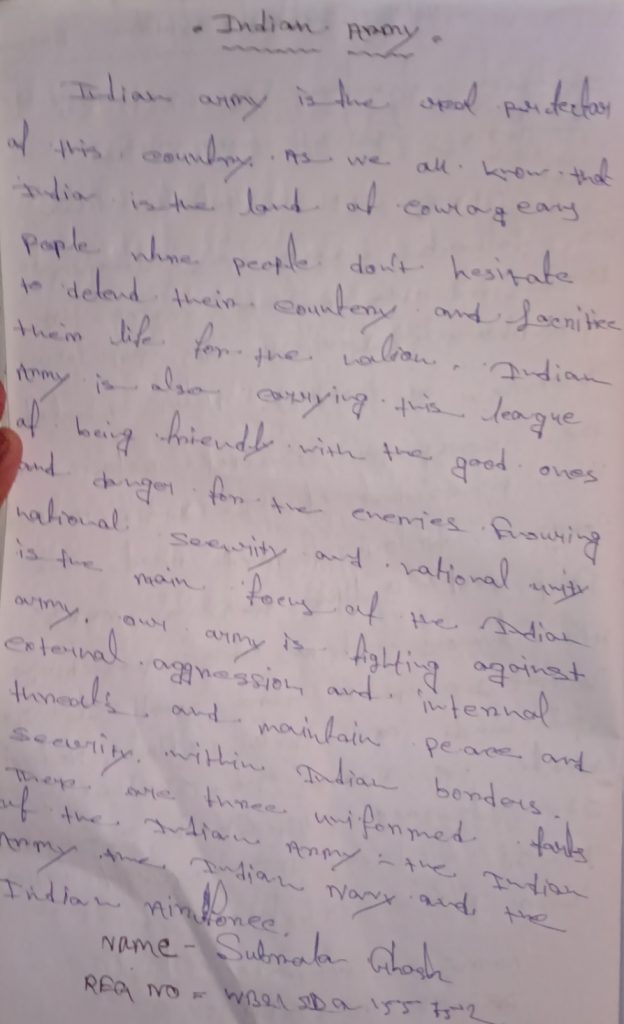 . Indian Army .
Indian army is the real protector
of this country. As we all know that
India is the land of courageous
people whre people don't hesitate
to defend their country and sacrifice
their life for the nation. Indian
Army is also carrying this league
of being friendly with the good ones
and danger for the enemies. Ensuring
national security and national unity
is the main focus of the Indian
army. our army is fighting against
external aggression and internal
threats and maintain peace and
security within Indian borders.
There are three uniformed parts
of the Indian Army - the Indian
Army the Indian Navy and the
Indian Airforce.
Name - Ghosh
REG NO =